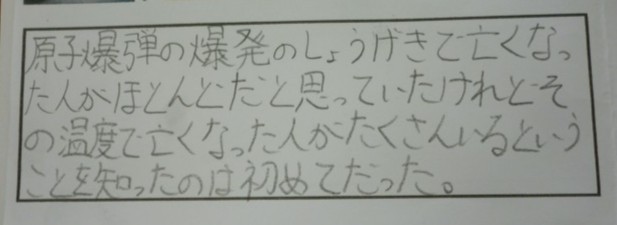 原子爆弾の爆発のしょうげきで亡くなっ
た人がほとんどだと思っていたけれどそ
の温度で亡くなった人がたくさんいるという
ことを知ったのは初めてだった。